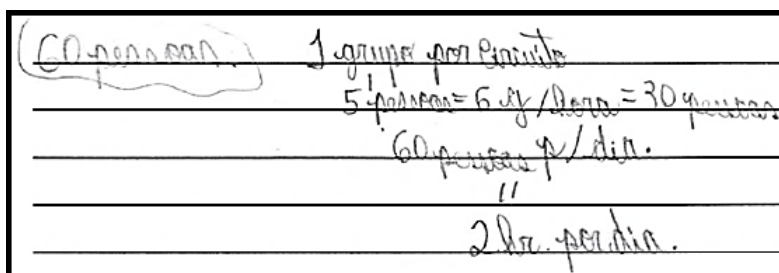 60 pessoas. 1 grupo por circuito
5 pessoas = 6 g/hora = 30 pessoas
60 pessoas p/ dia.
"
2 hr. por dia.